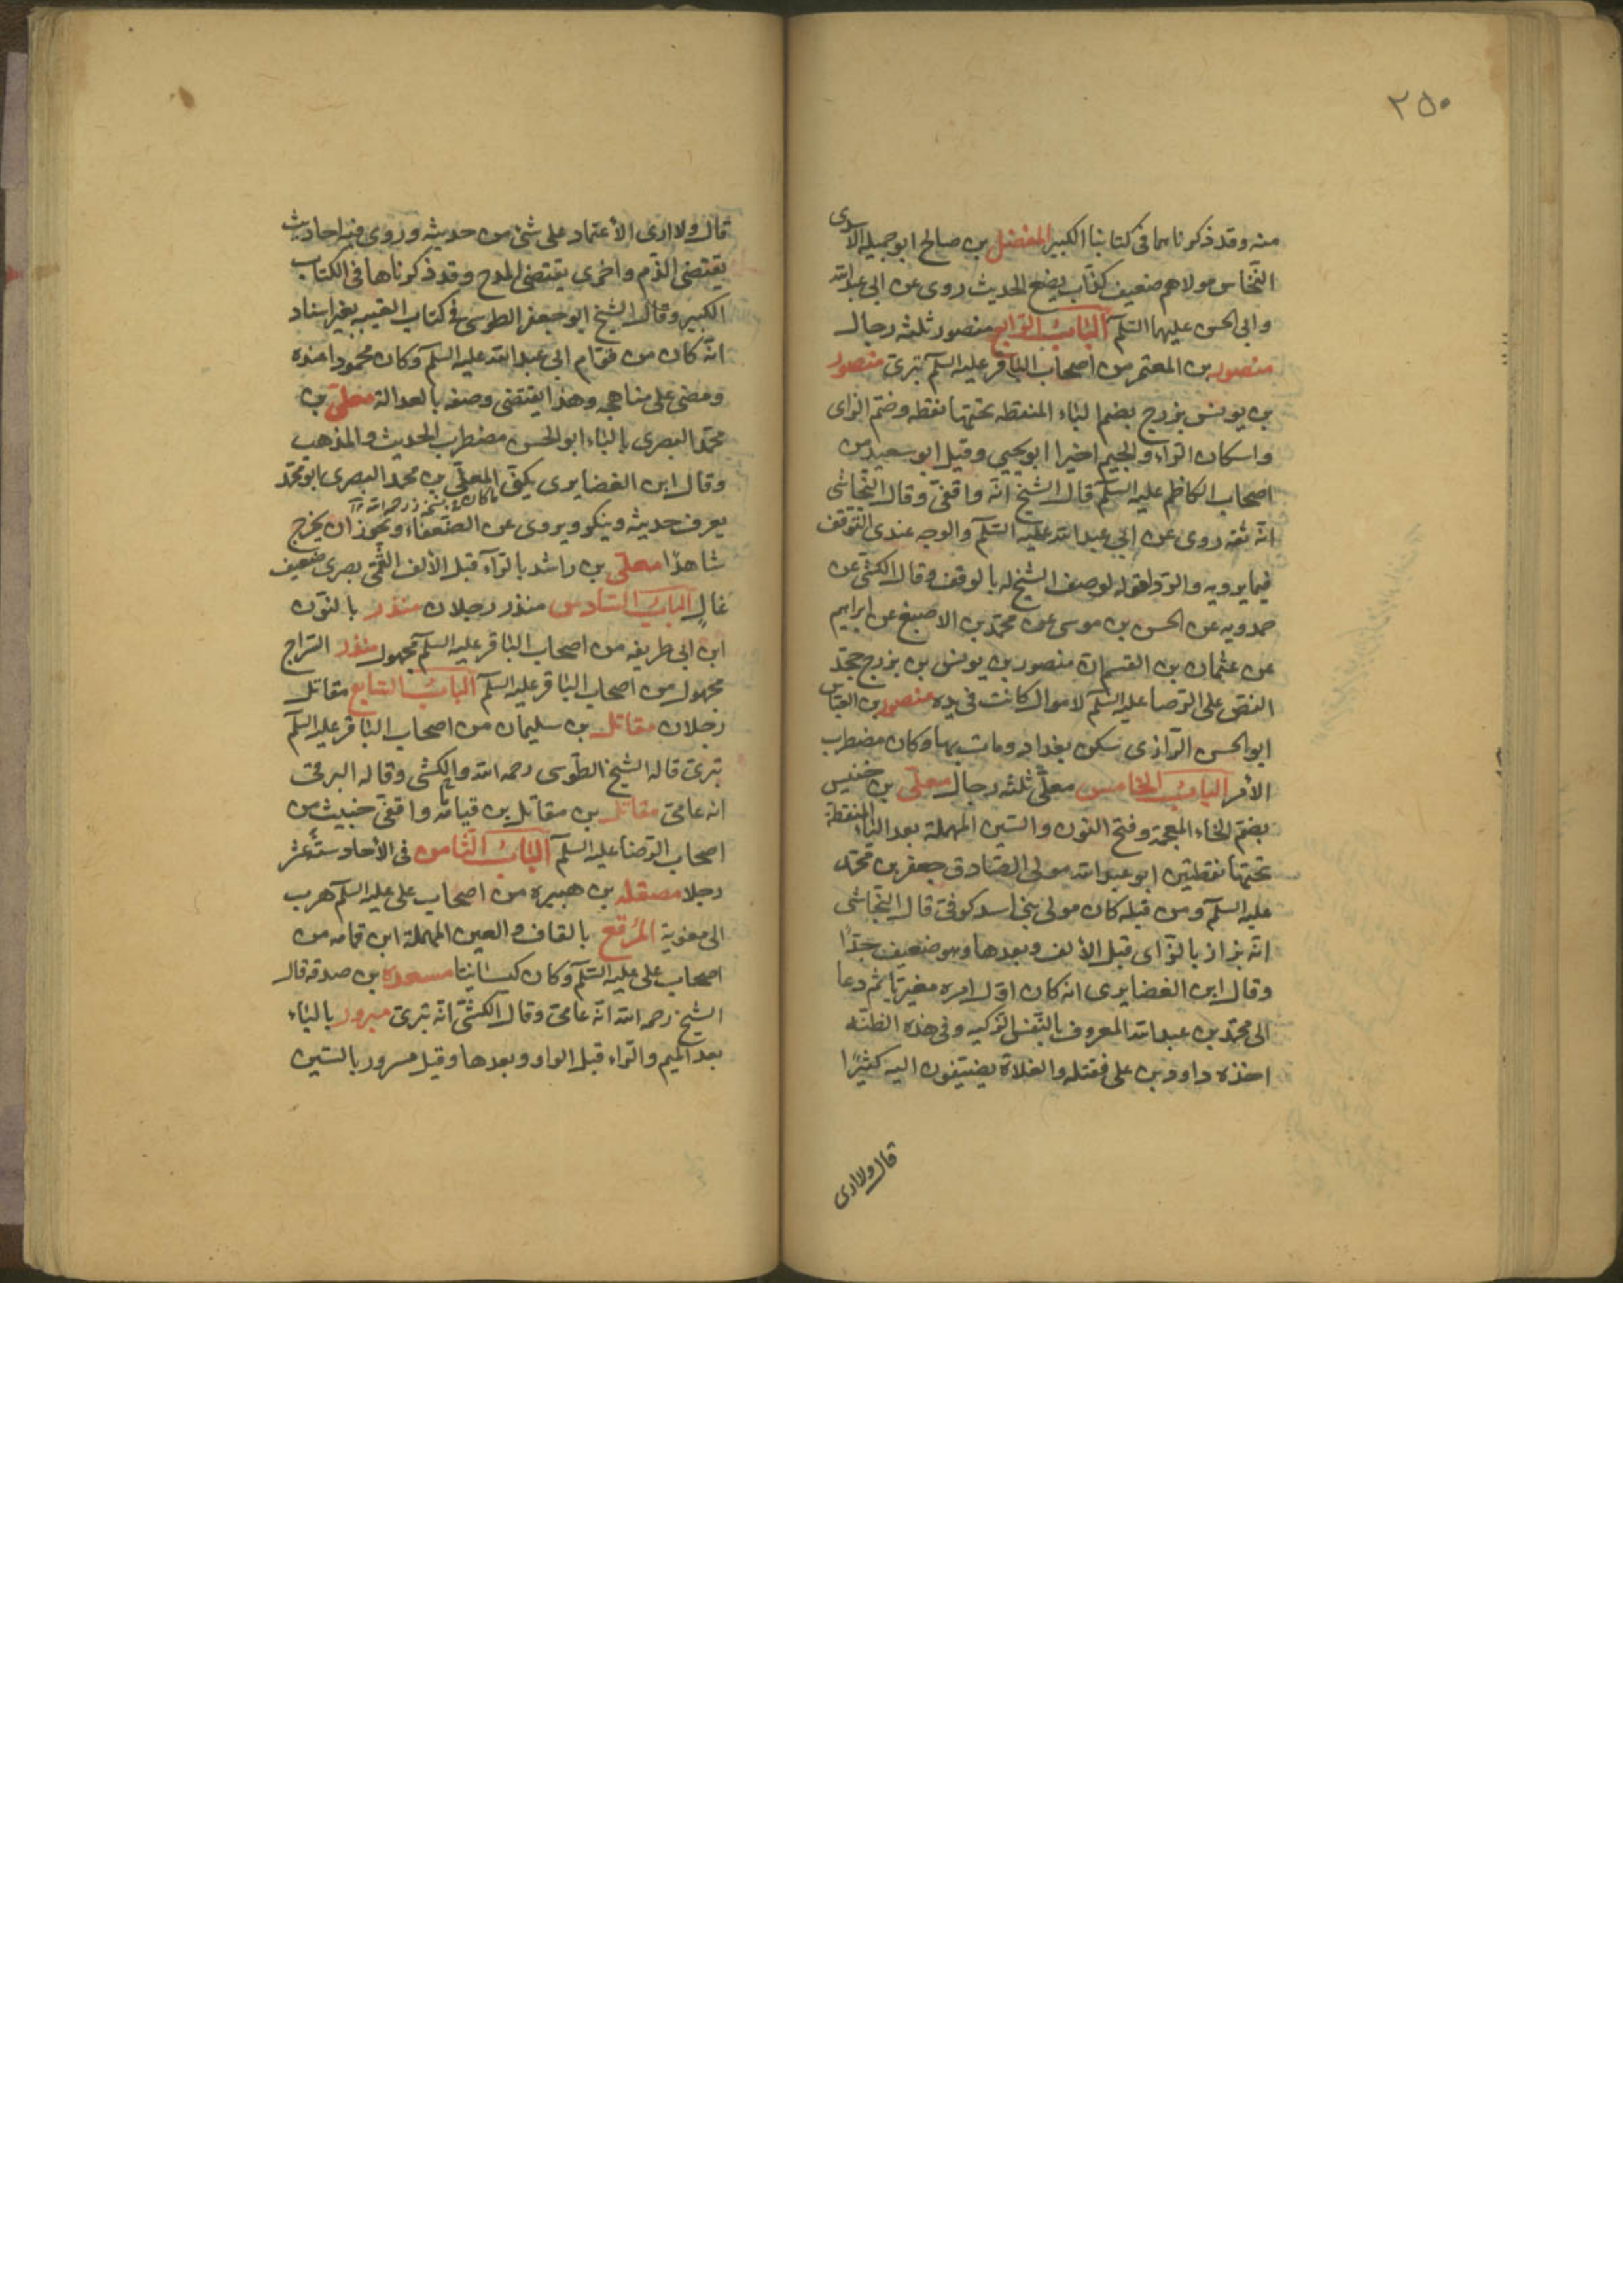 ٢٥٠
منه وقد ذكرناهما فى كتابنا الكبير المفضل بن صالح ابو جميله الاسدى
النخاس مولاهم ضعيف كذّاب يضع الحديث روى عن ابى عبد الله
وابى الحسن عليهما السّلم الباب الرابع منصور ثلثه رجال
منصور بن المعتمر من اصحاب الباقر عليه السلم بترىّ منصور
بن يونس بزرج بضم الباء المنقطه تحتها نقطه وضمّ الزاى
واسكان الرّاء والجيم اخيرا ابو يحيى وقيل ابو سعيد من
اصحاب الكاظم عليه السلم قال الشيخ انّه واقفىّ وقال النّجاشى
انه ثقه روى عن ابى عبد الله عليه السّلم والوجه عندى التّوقّف
فيما يرويه والردّ لقوله لوصف الشيخ له بالوقف وقال الكشّى عن
حمدويه عن الحسن بن موسى عن محمّد بن الاصبغ عن ابراهيم
عن عثمان بن القسم ان منصور بن يونس بن بزرج جحد
النصّ على الرّضا عليه السّلم لاموال كانت فى يده منصور بن العبّاس
ابو الحسن الرّازى سكن بغداد ومات بها وكان مضطرب
الأمر الباب الخامس معلّى ثلثه رجال معلّى بن خنيس
بضمّ الخاء المعجمة وفتح النون والسّين المهملة بعد الياء المنقطة
تحتها نقطتين ابو عبد الله مولى الصّادق جعفر بن محمّد
عليه السلم ومن قبله كان مولى بنى اسد كوفىّ قال النّجاشى
انّه بزاز بالزّاى قبل الألف وبعدها وهو ضعيف جدًّا
وقال ابن الغضايرى انه كان اوّل امره مغيريّا ثم دعا
الى محمّد بن عبد الله المعروف بالنّفس الزّكيه وفى هذه الظنّه
اخذه داود بن على فقتله والغلاة يضيفون اليه كثيرًا
قال ولا ارى
قال ولا ارى الأعتماد على شئ من حديثه وروى فيه احاديث
يقتضى الذّم واخرى يقتضى المدح وقد ذكرناها فى الكتاب
الكبير وقال الشيخ ابو جعفر الطوسى فى كتاب الغيبه بغير اسناد
انّه كان من قوّام ابى عبد الله عليه السلم وكان محمودا عنده
ومضى على مناهجه وهذا يقتضى وصفه بالعدالة معلّى بن
محمّد البصرى بالباء ابو الحسن مضطرب الحديث والمذهب
وقال ابن الغضايرى يكنّى المعلّى بن محمد البصرى بابو محمّد
يعرف حديثه وينكر ويروى عن الضّعفاء ويجوز ان يخرج
شاهدًا معلّى بن راشد بالرّاء قبل الألف القمّى بصرى ضعيف
غالٍ الباب السّادس منذر رجلان منذر بالنّون
ابن ابى طريفه من اصحاب الباقر عليه السلم مجهول منذر السّراج
مجهول من اصحاب الباقر عليه السلم الباب السّابع مقاتل
رجلان مقاتل بن سليمان من اصحاب الباقر عليه السلم
بترىّ قاله الشيخ الطّوسى رحمه الله والكشّى وقاله البرقى
انه عامىّ مقاتل بن مقاتل بن قياما واقفىّ خبيث من
اصحاب الرّضا عليه السلم الباب الثّامن فى الأحاد ستّة عشر
رجلا مصقله بن هبيره من اصحاب على عليه السلم هرب
الى معوية المُرَقّع بالقاف والعين المهملة ابن قمامه من
اصحاب على عليه السّلم وكان كيسانيّا مسعده بن صدقه قال
الشيخ رحمه الله انّه عامىّ وقال الكشّى انّه بترىّ مبرور بالباء
بعد الميم والرّاء قبل الواو وبعدها وقيل مسرور بالسّين